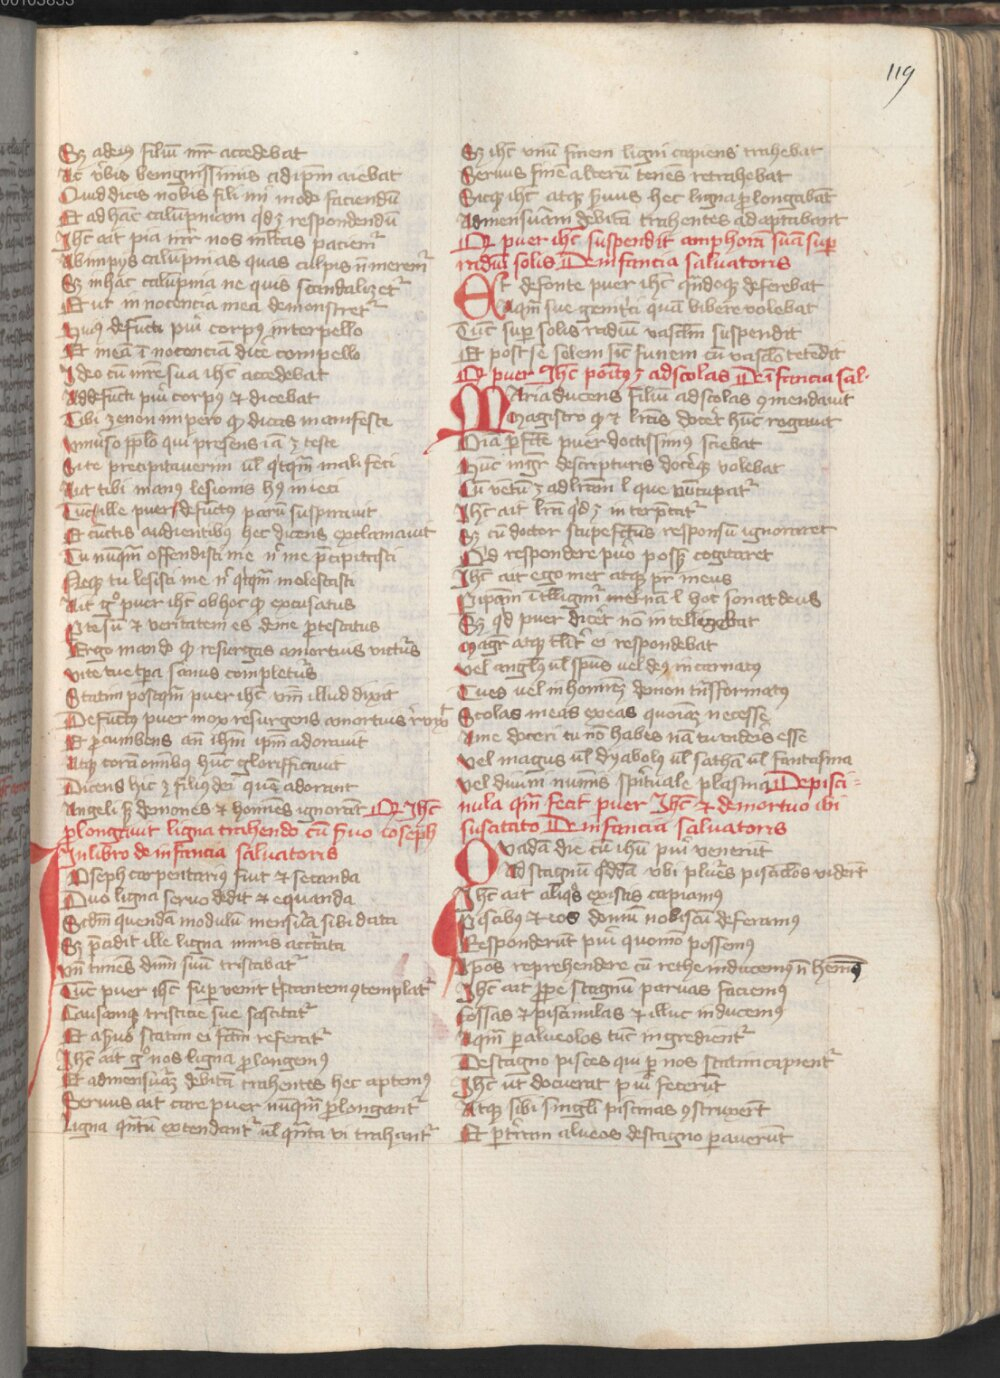 119
Sz adeius filiu mr accedebat
Ac vbis benignissimis ad ipm aiebat
Quid dicis nobis fili mi modo faciendu
Et ad hac calupniam qd z respondendu
Ihc ait pia mr nos mltas paciemr
Ab impys calupnias quas culpis n meremr
Sz in hac calupnia ne quis scandalizetr
Et ut in nocencia mea demonstretr
Huius defucti pui corpus interpello
Et mea i nocencia dice compello
Ideo cu mre sua ihc accedebat
Ad defucti pui corpus et dicebat
Tibi zenon impero q dicas manifeste
Vniuso pplo qui presens ia z teste
Si te precipitauerim ul qtqm mali feci
Aut tibi manus lesionis hs mieci
Tuc ille puer defuctus paru suspirauit
Et cunctis audientibus hec dicens exclamauit
Tu nuqm offendisti me nr me pcipitasti
Neqz tu lesisti me nr qtqm molestasti
Ait go puer ihc ob hoc q excusatus
Per te su et veritatem es de me ptestatus
Ergo mando q resurgas amortuis victurus
Vite tue tpa sanus completurus
Statim posqm puer ihc vm illud dixit
Defunctus puer mox resurgens amortuis reuixit
Et pcumbens an ihm ipm adorauit
Atqz cora omnibus huc glorifficauit
Dicens hic z filius dei que adorant
Angeli sz demones et homines ignorat Qr Ihc
plongauit ligna trahendo cu suo ioseph
In libro de infancia saluatoris
Ioseph carpentarius fuit et secanda
Duo ligna seruo dedit et equanda
Scdm quenda modulu mensura sibi data
Sz pcidit ille ligna minus accurtata
Vn timens dnm suu tristabatr
Tuc puer ihc supuenit tristantem contemplatr
Causamqz tristicie sue sascitatr
Et a suo statim ei fcm referatr
Ihc ait go nos ligna plongemus
Et ad mensuraz debita trahentes hec aptemus
Seruus ait care puer nuqm plongantr
Ligna qntu extendantr ul qnta vi trahantr
Sz ihc vnu finem ligni capiens trahebat
Seruus fine alteru tenes retrahebat
Sicqz ihc atqz suus hec ligna plongabat
Ad mensuram debita trahentes adaptabant
Qr puer ihc suspendit amphora sua sup
radiu solis De infancia saluatoris
Et de fonte puer ihc qndoqz deferebat
Aqm sue genitrici qua bibere volebat
Tuc sup solis radiu vasclm suspendit
Et post se solem sic funem cu vasclo tetendit
Qr puer Ihc positus z ad scolas De ifancia sal.
Maria ducens filiu ad scolas comendauit
Magistro q et lras doceret huc rogauit
Quia pfcte puer doctissimus sciebat
Huc mgr de scripturis doceqz volebat
Cu ventu z ad lram l que nucupatr
Ihc ait lra qd z interptatr
Sz cu doctor stupefctus responsu ignoraret
Qd respondere puo possz cogitaret
Ihc ait ego met atqz pr meus
Per ipam itelligimr nam l hoc sonat deus
Sz qd puer diceret no intelligebat
Magr atqz tlr ei respondebat
Vel anglus ul spus uel deus incarnatus
Tu es uel in hominez demon trasformatus
Scolas meas exeas quoniaz necesse
A me doceri tu no habes na tu videris esse
Vel magus ul dyabolus ul sathan ul fantasma
Vel diuini numinis spirtuale plasma De pisci=
nula qm fecit puer Ihc et de mortuo ibi
suscitato De infancia saluatoris
Quada die cu ihu pui venerut
Ad stagnu qdda vbi plures pisciclos viderut
Ihc ait aliqs existis capiamus
Piscibus et eos domu nobiscu deferamus
Responderut pui quomo possemus
Ipos reprehendere cu rethe inducemus n hemus
Ihc ait ppe stagnu paruas faciemus
Fossas et piscinulas et illuc inducemus
Aqm p alueolos tuc ingredientr
De stagno pisces qui p nos statim capientr
Ihc ut docuerat pui fecerut
Atqz sibi singli piscinas construxert
Et p tram alueos de stagno pauerut